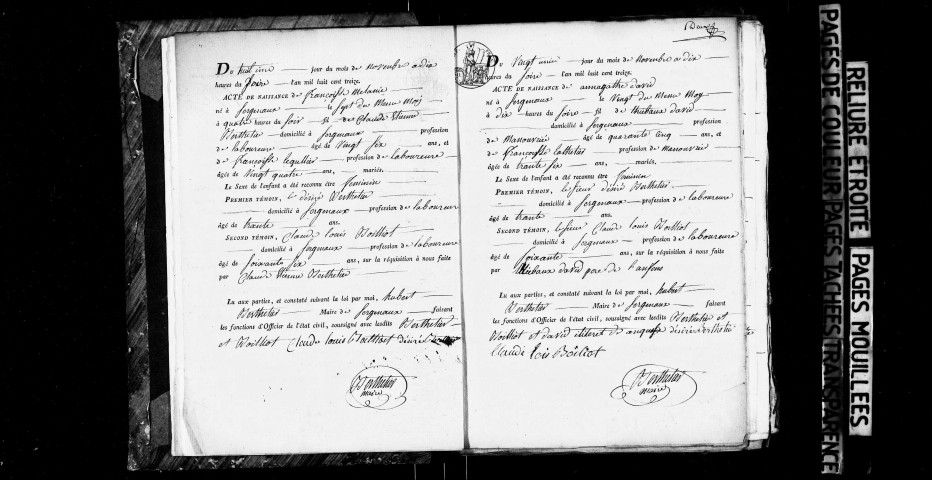 Du huitième jour du mois de novembre a dix
heures du soire l'an mil huit cent treize.
ACTE DE NAISSANCE de françoisse melanie
né à Sergenaux le sept du meme mois
à quatre heures du soir fil de Claude Etienne
Berthelier domicilié à Sergenaux profession
de laboureure âgé de vingt six ans, et
de françoisse profession de laboureure
âgée de vingt quatre ans, mariés.
Le Sexe de l'enfant a été reconnu être feminin
PREMIER TÉMOIN, le désiré Berthelier
domicilié à Sergenaux profession de laboureur
âgé de trante ans.
SECOND TÉMOIN, Claude louis Boilliot
domicilié à Sergenaux profession de laboureure
âgé de soixante six ans, sur la réquisition à nous faite
par Claude Etienne Berthelier
Lu aux parties, et constaté suivant la loi par moi, hubert
Berthelier Maire de Sergenaux faisant
les fonctions d'Officier de l'état civil, soussigné avec lesdits Berthelier
et Boilliot Claude louis désiré
Berthelier
maire
Du vingt unie jour du mois de novembre a dix
heures du soire l'an mil huit cent treize.
ACTE DE NAISSANCE de annagathe david
né à Sergenaux le vingt du meme moy
à dix heures du soire fil de thiebaux david
domicilié à Sergenaux profession
de manouvrié âgé de quarante cinq ans, et
de françoisse profession de manouvrié
âgée de trante six ans, mariés.
Le Sexe de l'enfant a été reconnu être feminin
PREMIER TÉMOIN, le sieur désiré Berthelier
domicilié à Sergenaux profession de laboureure
âgé de trante ans.
SECOND TÉMOIN, le sieur Claude louis Boilliot
domicilié à Sergenaux profession de laboureure
âgé de soixante ans, sur la réquisition à nous faite
par thiebaux david pere de l'anfans
Lu aux parties, et constaté suivant la loi par moi, hubert
Berthelier Maire de Sergenaux faisant
les fonctions d'Officier de l'état civil, soussigné avec lesdits Berthelier et
Boilliot et david désiré Berthelier
Claude
Berthelier
maire
RELIURE ETROITE
PAGES MOUILLEES
PAGES DE COULEUR
PAGES TACHEES
TRANSPARENCE